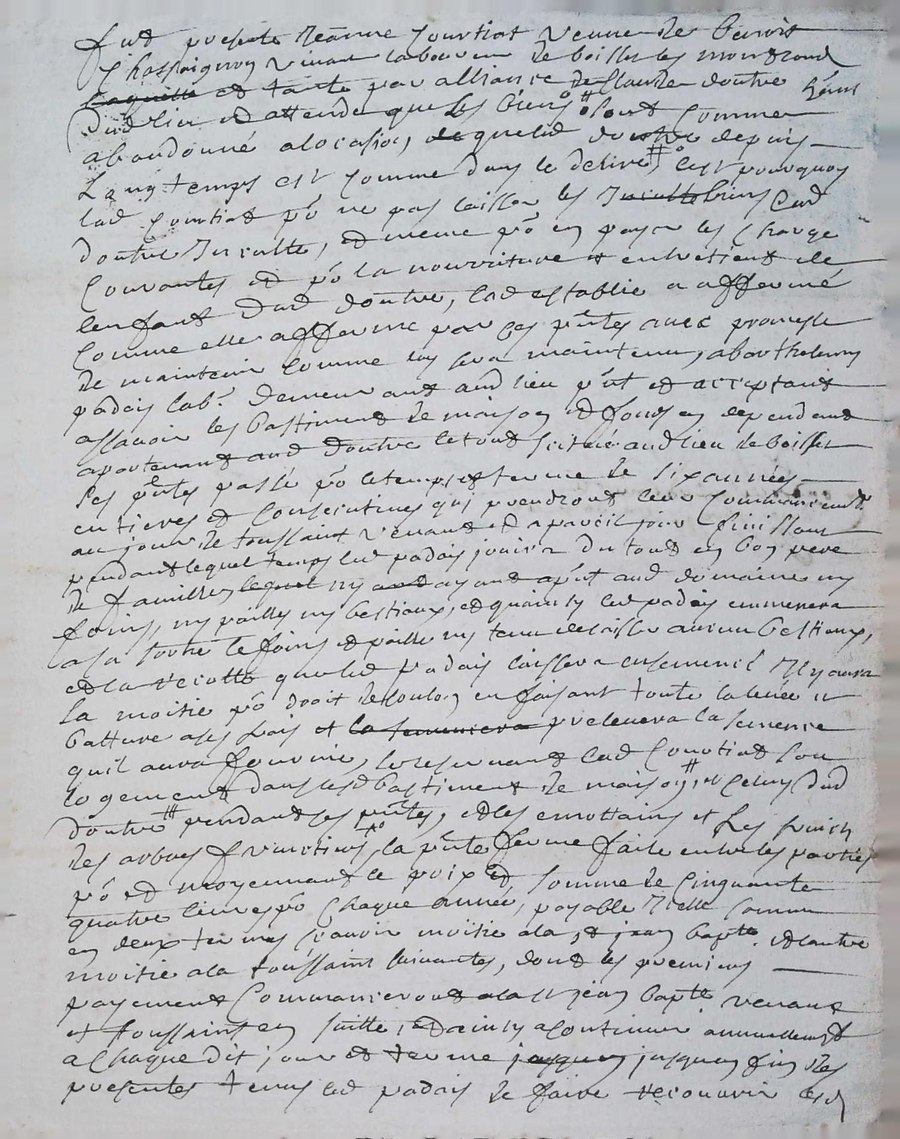 fut presente Jeanne Courtiat veuve de benoit
Chassaignon vivant laboureur de boisset les montrond
laquelle et tante par alliance de Claude doutre
dud lieu et attendu que les biens # sont comme
abandonné a locasion, de quelid doutre depuis
Long temps est comme dans le delire #, cest pourquoy
lad Courtiat po ne pas laisser les Inculte biens dud
doutre Inculte, et meme po en payer les charge
Courantes et po la nourriture et entretient de
lenfant dud doutre, lad establie a affermé
Comme elle afferme par ces pntes avec promesse
de maintenir comme sus sera maintenu, a barthelemy
padais labr. demeurant aud lieu pnt et acceptant
assavoir les bastiment de maison et fonds en dependant
apartenant aud doutre le tout scitué aud lieu de boisset
Ses pntes passé po le temps et terme de six années
entieres et Consecutives qui prendront leur Commencemt
au jour de toussaint venant et a pareil jour finissant
pendant lequel temps led padais jouira du tout en bon pere
de famille lequel ny ayant apnt aud domaine ny
foins, ny pailles ny bestiaux, et quainsy led padais emmenera
a sa sortie le foins et paille ny tenu delaisser aucun bestiaux,
et la recolte queled padais laissera ensemencé Il y aura
La moitie po droit de coulon en faisant toute la levée et
batture a ses frais et la semera prelevera la semence
quil aura fournie, se reservant lad Courtiat son
logement dans lesd bastiment de maison #, et celuy dud
doutre # pendant ses pntes, et les emottains et Les fruits
des arbres fruitiers, la pnte ferme faite entre les parties
po et moyennant le prix et somme de Cinquante
quatre livres po Chaque année, payable Icelle somme
en deux termes scavoir moitie a la st jean bapte. et lautre
moitie a la toussaint suivantes, dont les premiers
payement Commanceront a la st jean bapte venant
et toussaint en suitte, et ainsy a continuer annuellemt
a Chaque dit jour et terme jusques jusques fin des
presentes tenu led padais de faire recouvrir lesd